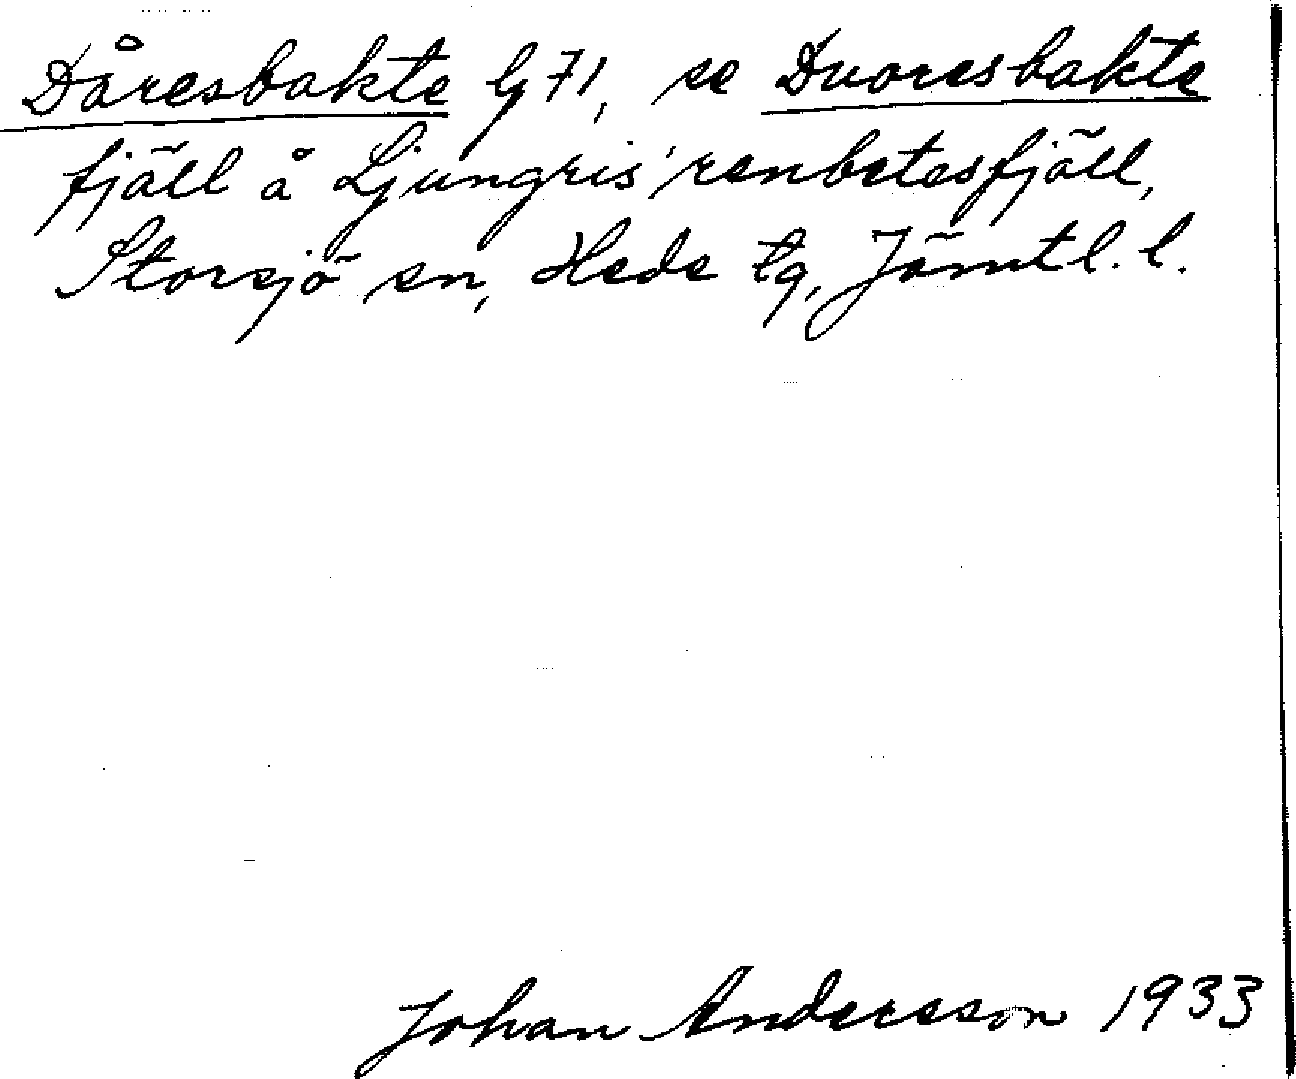 Dåresbakte G71, se Duoresbakte
fjäll å Ljungris' renbetesfjäll,
Storsjö sn, Hede tg, Jämtl. l.
Johan Andersson 1933